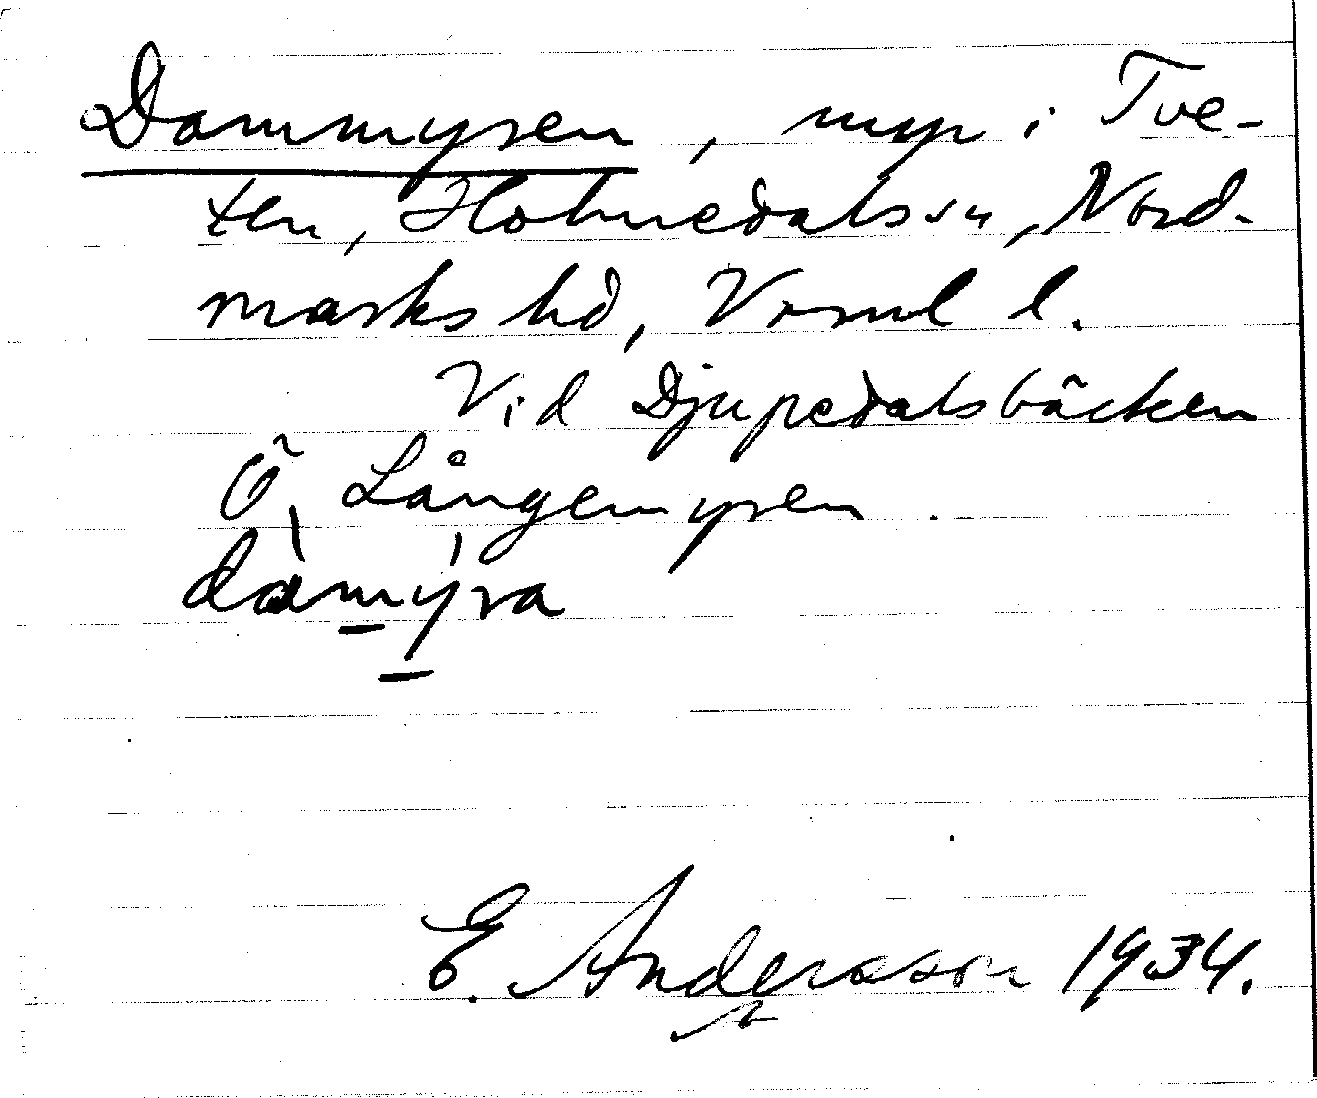 Dammyren, myr i Tve-
ten, Holmedals sn, Nord-
marks hd, Vrml l.
Vid Djupedalsbäcken
Ö. Långemyren.
dàmýra
E. Andersson 1934.